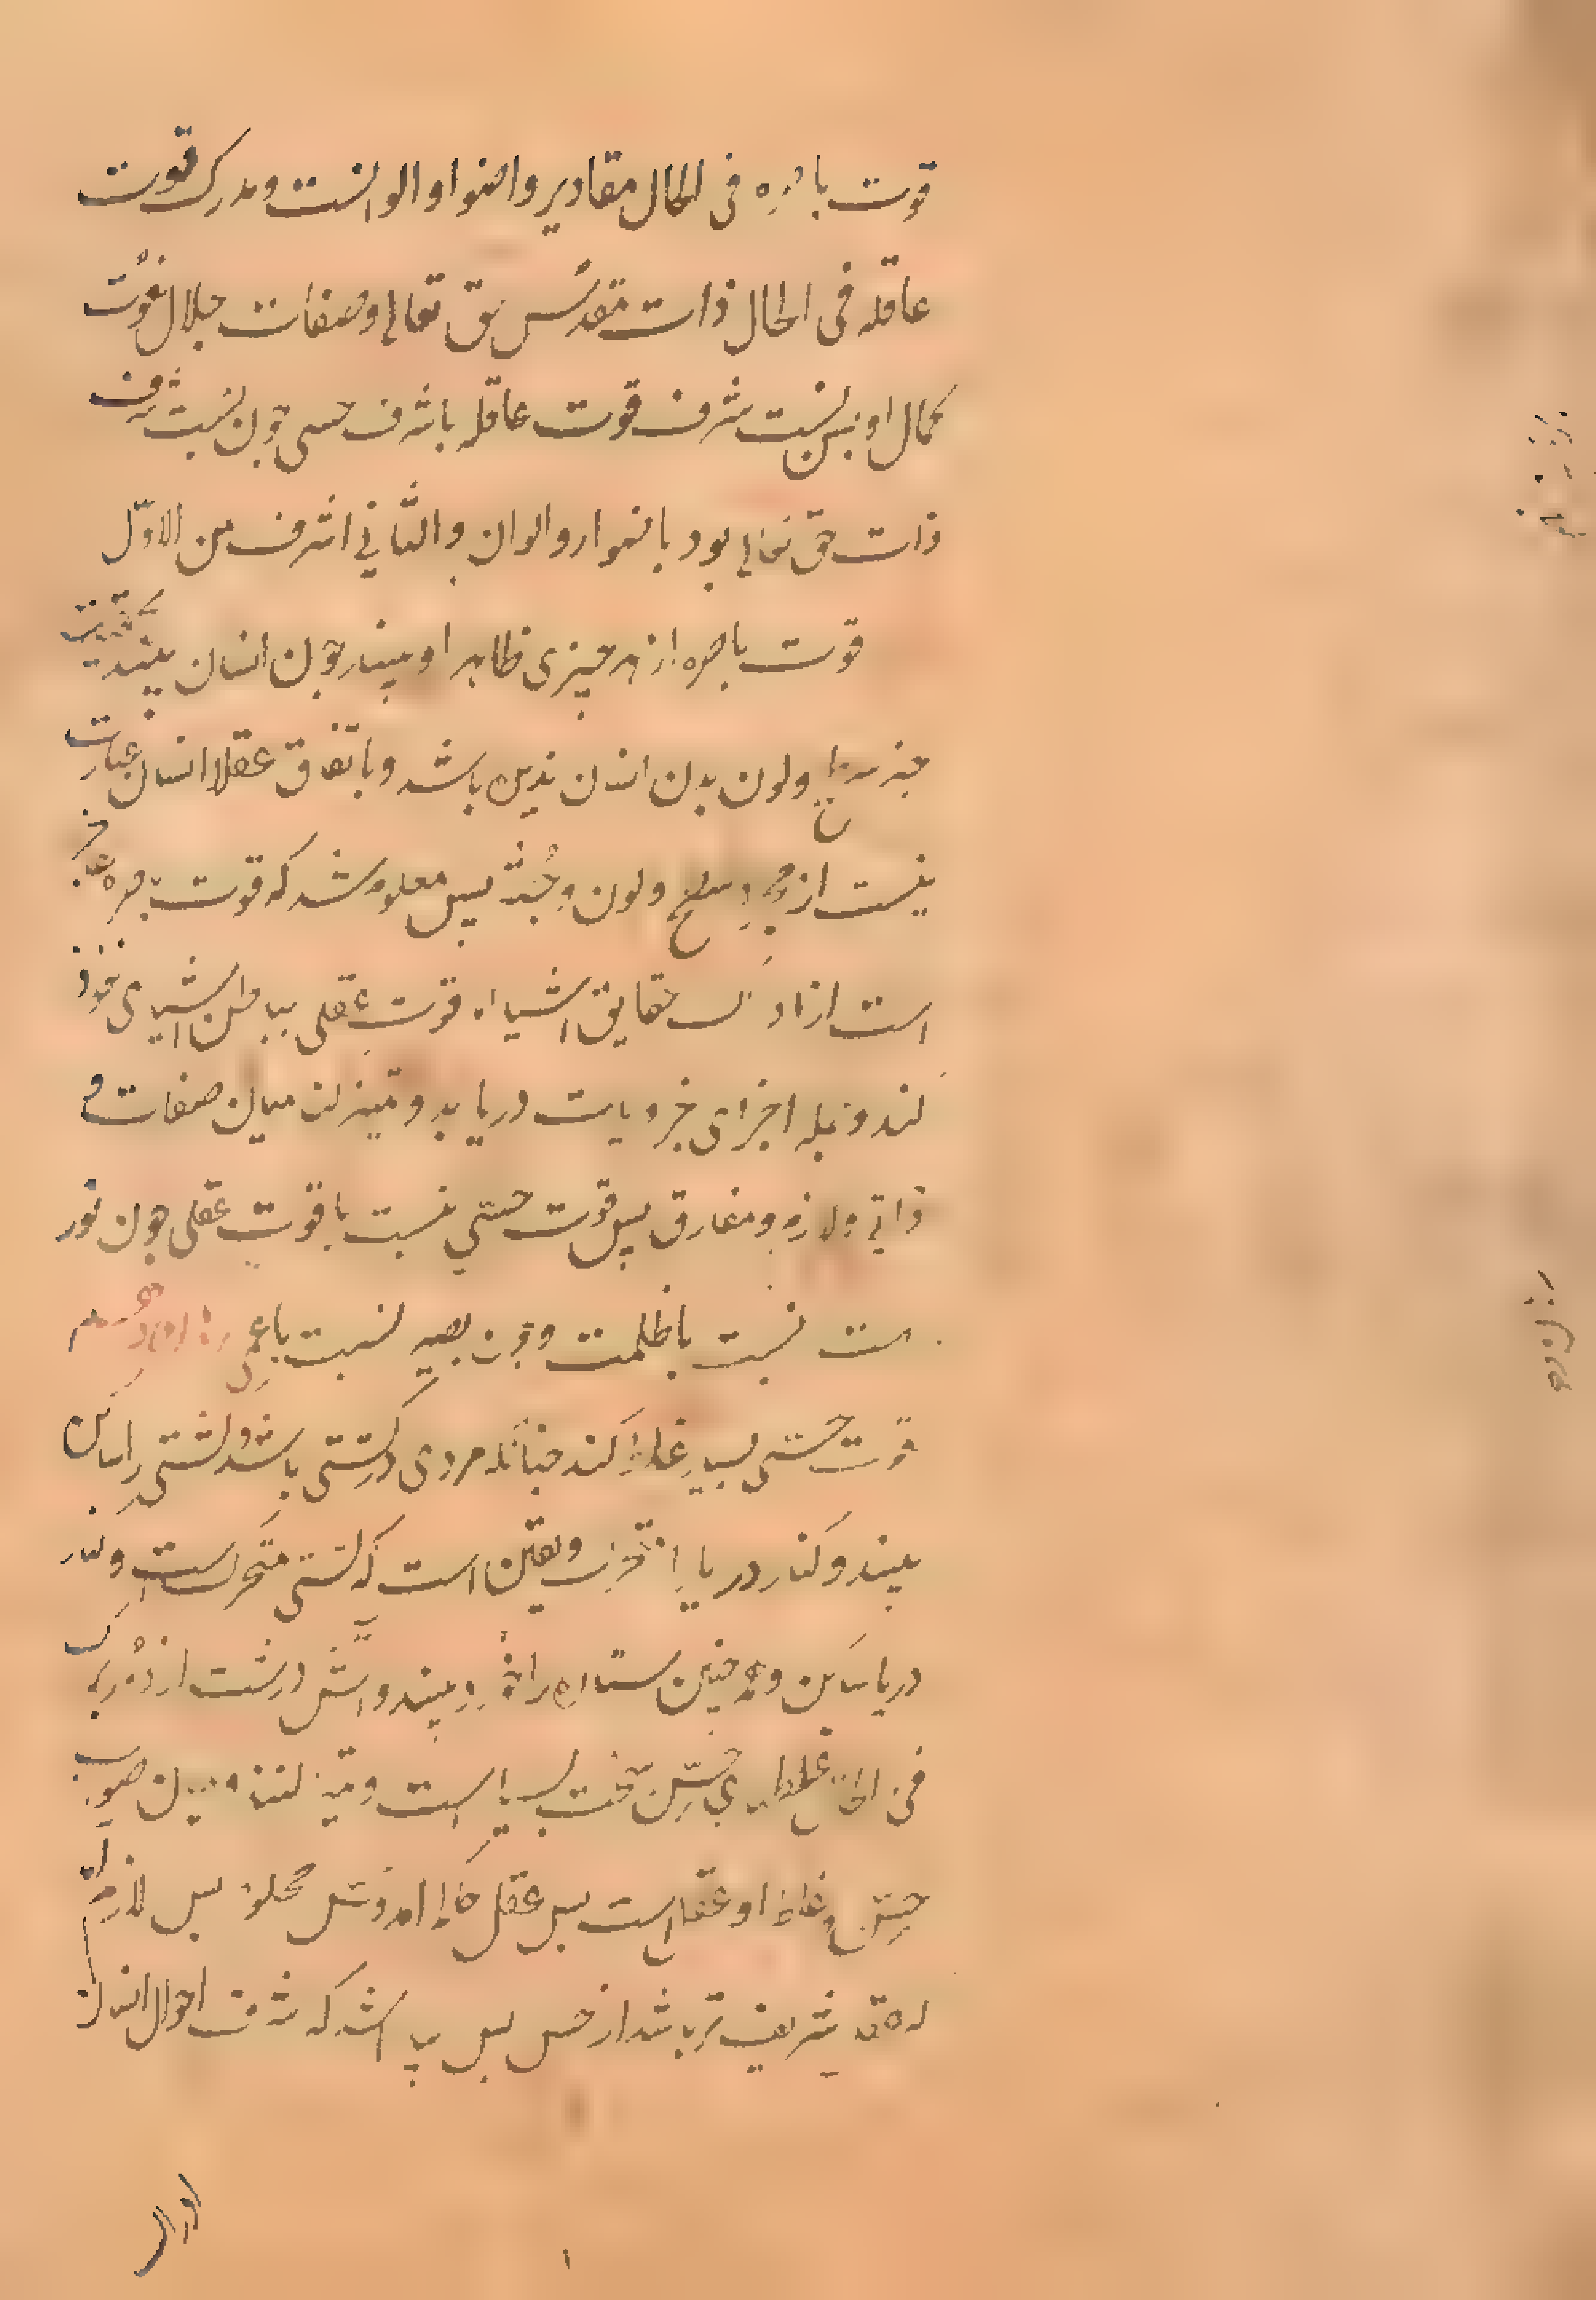 قوت باصره فی الحال مقادیر واضوا و الوانست و مدرک قوت
عاقله فی الحال ذات مقدّس حق تعالی و صفات جلال نعوت
کمال او پس نسبت شرف قوت عاقله با شرف حسی چون نسبت شرف
ذات حق تعالی بود بانوار و الوان و الثانی اشرف من الاوّل
قوت باصره از هر چیزی ظاهر او بیند چون انسان بیند
جز سطح و لون بدن انسان ندیده باشد و باتفاق عقلا انسان عبارت
نیست از مجرد سطح و لون و جثه پس معلوم شد که قوت باصره عاجز
است از ادراک حقایق اشیا و قوت عقلی بباطن اشیای نفوذ
کند و جمله اجزای جزویات دریابد و تمیز کند میان صفات و
ذاتی و لازم و مفارق پس قوت حسی نسبت با قوت عقلی چون نور
است نسبت با ظلمت و چون بصیر نسبت با عمی
قوت حسی بسیار غلط کند چنانکه مردی در کشتی باشد و کشتی را ساکن
بیند و کنار دریا را متحرک و یقین است که کشتی متحرکست و کنار
دریا ساکن و همچنین ستاره را خرد بیند و آتش درشت از دور
غلطهای حس سخت بسیار است و تمیز کننده میان صواب
حس و غلط او عقل است پس عقل حاکم آمد و حس محکوم پس لازم
که عقل شریف تر باشد از حس پس پیدا شد که شرف احوال انسان